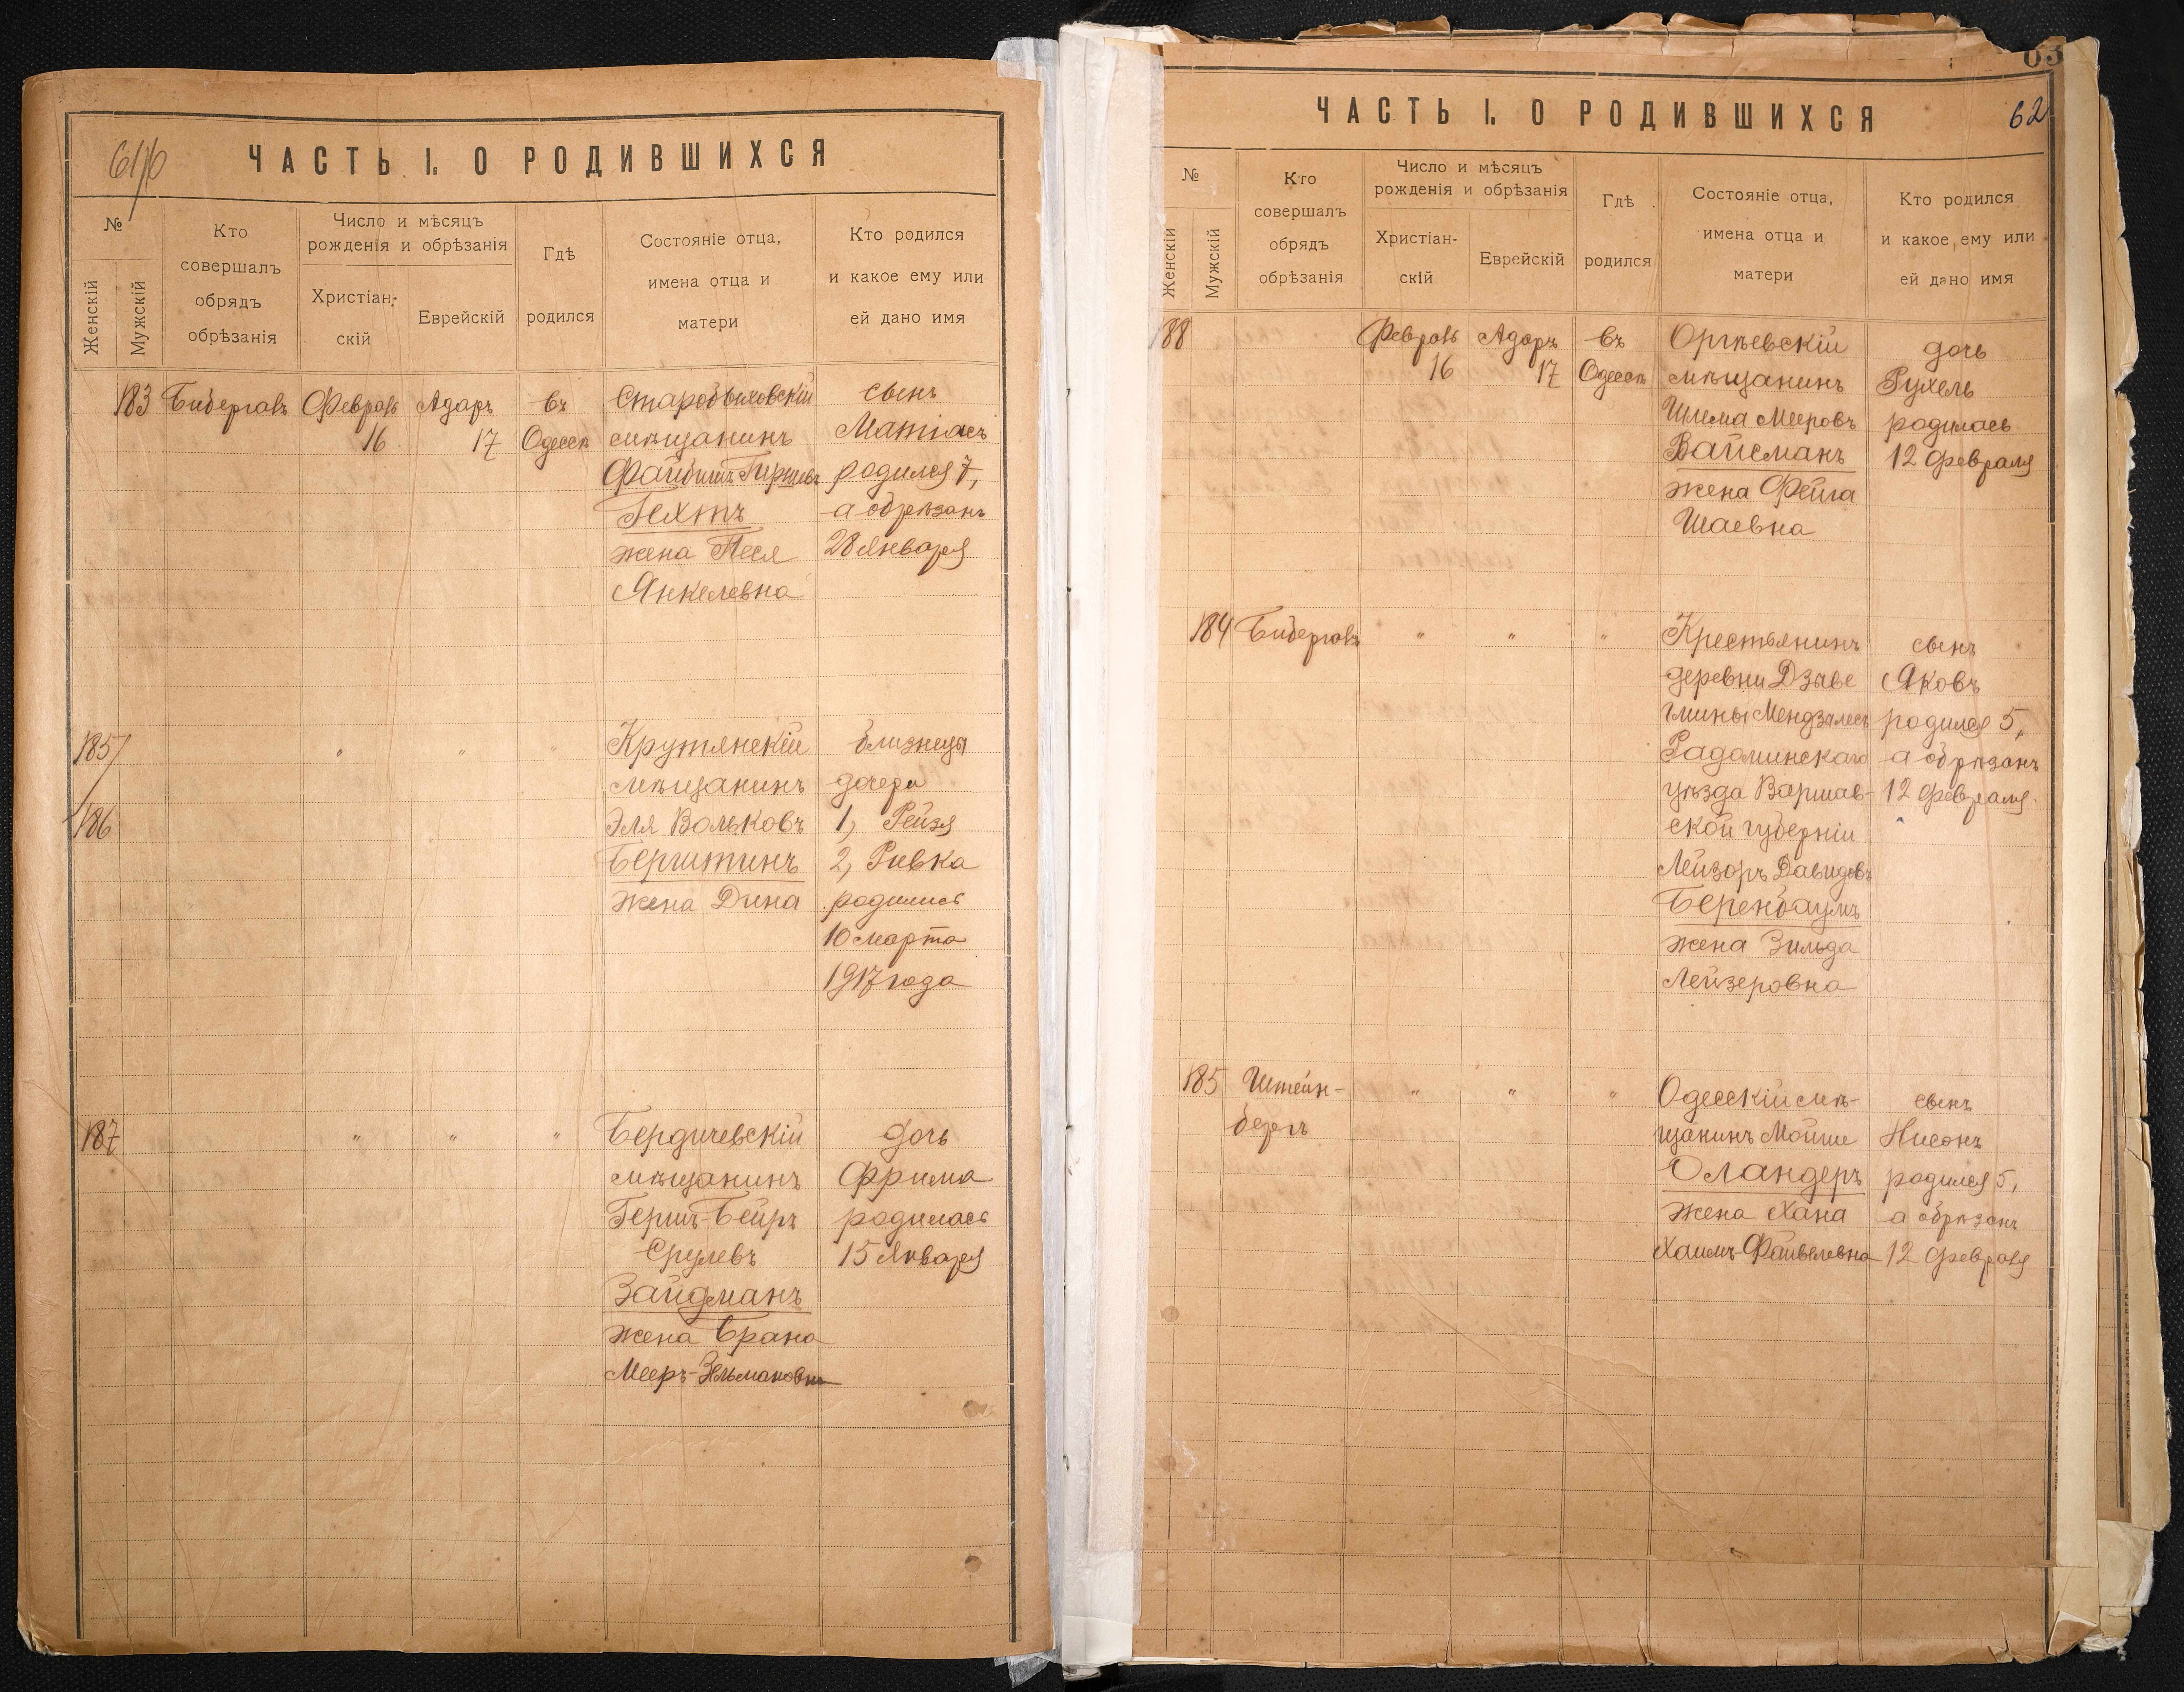 ЧАСТЬ I. О РОДИВШИХСЯ
№
Женскій
Мужскій
Кто
совершалъ
обрядъ
обрѣзанія
Число и мѣсяцъ
рожденія и обрѣзанія
Христіан-
скій
Еврейскій
Гдѣ
родился
Состояніе отца,
имена отца и
матери
Кто родился
и какое ему или
ей дано имя
183 Бибергалъ Февраль Адаръ въ Старобыховскій сынъ
16 17 Одессѣ мѣщанинъ Матіасъ
Файбишъ Гиршевъ родился 7,
Гехтъ а обрѣзанъ
жена Песя 28 Января
Янкелевна
185 " " " Крутянскій близнецы
мѣщанинъ дочери
186 Эля Вольковъ 1, Рейзя
Берштинъ 2, Ривка
жена Дина родились
10 марта
1917 года
187 " " " Бердичевскій дочь
мѣщанинъ Фрима
Гершъ-Бейръ родилась
Срулевъ 15 Января
Зайдманъ
жена Брана
Мееръ-Зельмановна
63
ЧАСТЬ I. О РОДИВШИХСЯ 62
№
Женскій
Мужскій
Кто
совершалъ
обрядъ
обрѣзанія
Число и мѣсяцъ
рожденія и обрѣзанія
Христіан-
скій
Еврейскій
Гдѣ
родился
Состояніе отца,
имена отца и
матери
Кто родился
и какое ему или
ей дано имя
188 Февраль Адаръ въ Оргѣевскій дочь
16 17 Одессѣ мѣщанинъ Рухель
Шлема Мееровъ родилась
Вайсманъ 12 Февраля
жена Фейга
Шаевна
184 Бибергалъ " " " Крестьянинъ сынъ
деревни Дзяве Яковъ
гмины Мендзылесъ родился 5,
Радоминскаго а обрѣзанъ
уѣзда Варшав- 12 Февраля.
ской губерніи
Лейзоръ Давидовъ
Беренбаумъ
жена Зильда
Лейзеровна
185 Штейн- " " " Одесскій мѣ- сынъ
бергъ щанинъ Мойше Нисонъ
Оландеръ родился 5,
жена Хана а обрѣзанъ
Хаимъ-Файвелевна 12 Февраля